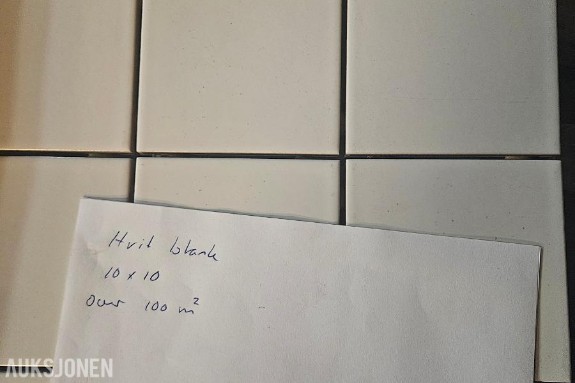 Hvit blank
10 x 10
Over 100 m²
AUKSJONEN